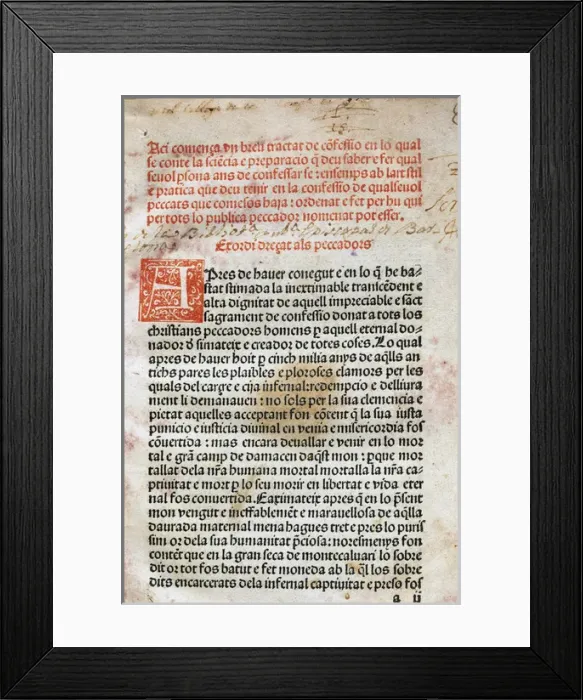 Ací comença vn breu tractat de cõfessio en lo qual
se conte la sciẽcia e preparacio q̃ deu saber e fer qual
seuol p̱sona ans de confessar se : ensemps ab lart stil
e pratica que deu tenir en la confessio de qualseuol
peccats que comesos haja : ordenat e fet per hu qui
per tots lo publica peccador nomenat pot esser.
Exordi dreçat als peccadors
APres de hauer conegut e en lo q̃ he ba-
stat stimada la inextimable transcẽdent e
alta dignitat de aquell impreciable e sãct
sagrament de confessio donat a tots los
christians peccadors homens p̱ aquell eternal do-
nador d̓ si mateix e creador de totes coses. Lo qual
apres de hauer hoit p̱ cinch milia anys de aq̃lls an
tichs pares les plaibles e ploroses clamors per les
quals del carçre e cija infernal : redempcio e delliura
ment li demanauen : no sols per la sua clemencia e
pietat aquelles acceptant fon cõtent q̃ la sua iusta
punicio e iusticia diuinal en venia e misericordia fos
cõuertida : mas encara deuallar e venir en lo mor
tal e grã camp de damacen daq̃st mon : p̱que mor
tallat dela nr̃a humana mortal mortalla la nr̃a ca-
ptiuitat e mort p̱ lo seu morir en libertat e vida eter
nal fos conuertida. E aximateix apres q̃ en lo p̃sent
mon vengut e ineffablemẽt e marauellosa de aq̃lla
daurada maternal mena hagues tret e pres lo puris
sim or dela sua humanitat p̃ciosa : noresmenys fon
contẽt que en la gran seca de montecaluari lo sobre
dit or tot fos batut e fet moneda ab la q̃l los sobre
dits encarcerats dela infernal captiuitat e preso fos
a ii